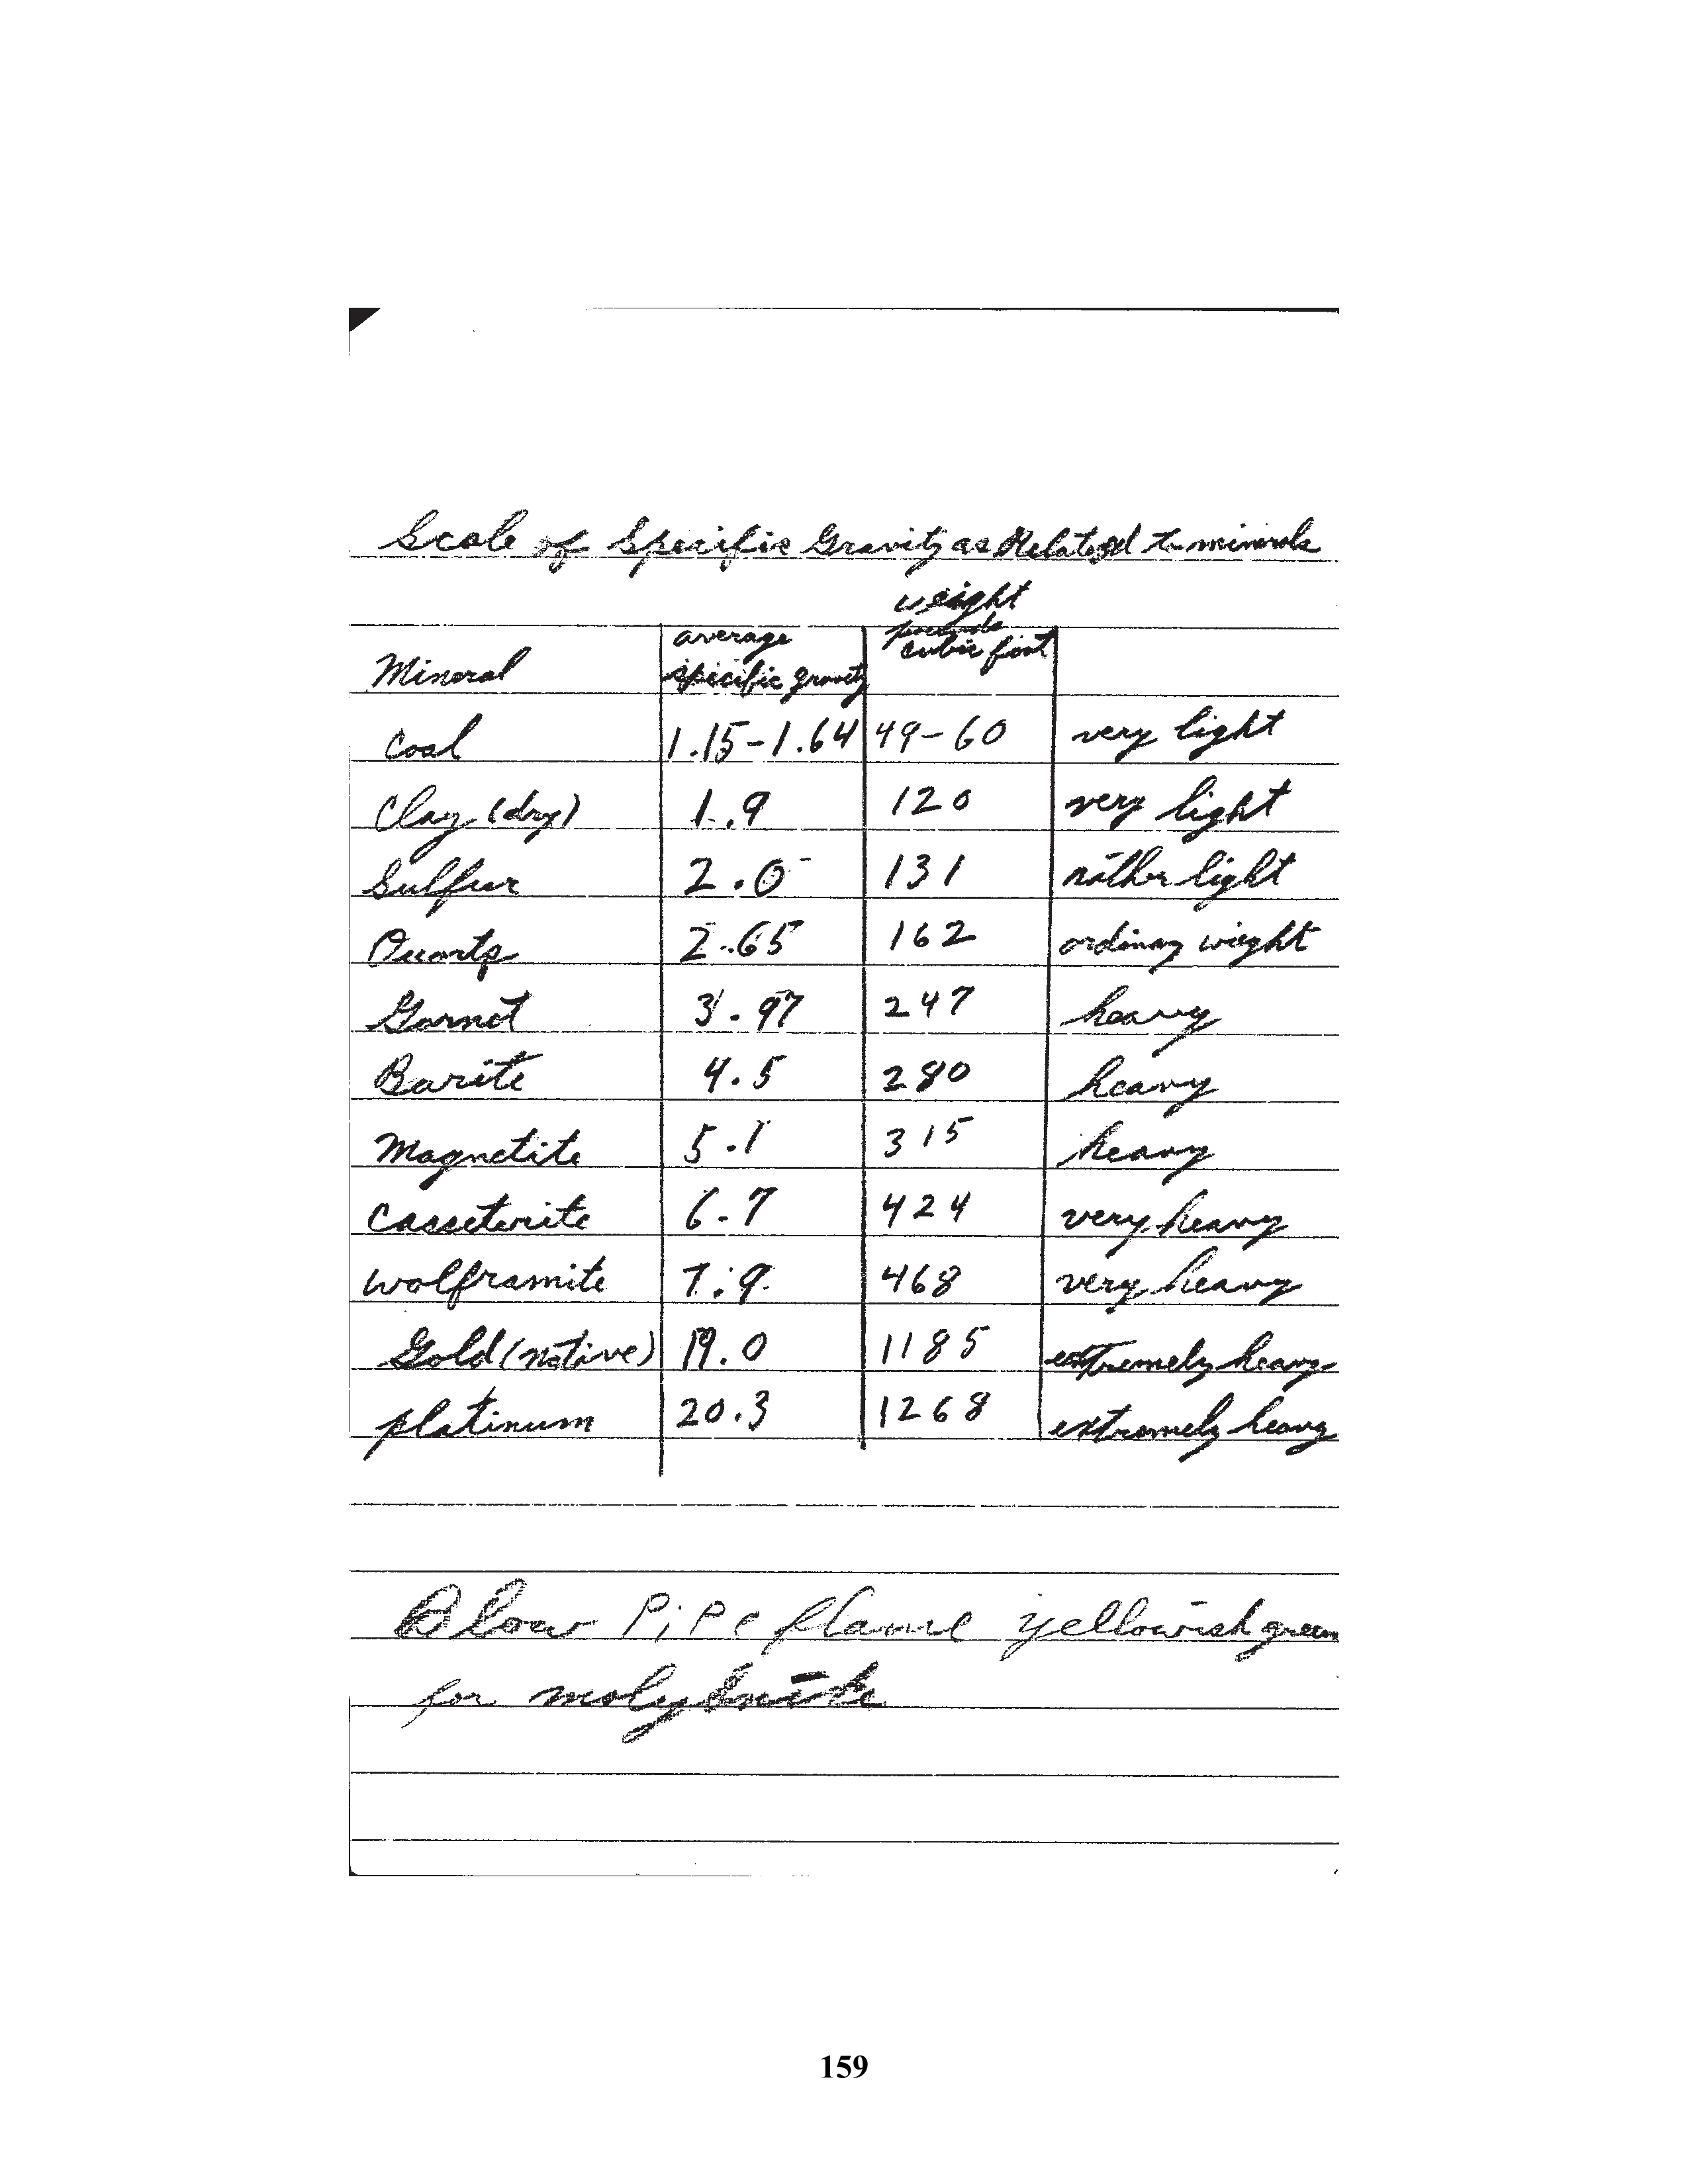 Scale of Specific Gravity as Related to minerals
weight
average pounds
Mineral specific gravity cubic foot
Coal 1.15-1.64 49-60 very light
Clay (dry) 1.9 120 very light
Sulfur 2.0 131 rather light
Quartz 2.65 162 ordinary weight
Garnet 3.97 247 heavy
Barite 4.5 280 heavy
Magnetite 5.1 315 heavy
Casseterite 6.7 424 very heavy
Wolframite 7.9 468 very heavy
Gold (native) 19.0 1185 extremely heavy
platinum 20.3 1268 extremely heavy
Blow Pipe flame yellowish green
for molybnite
159